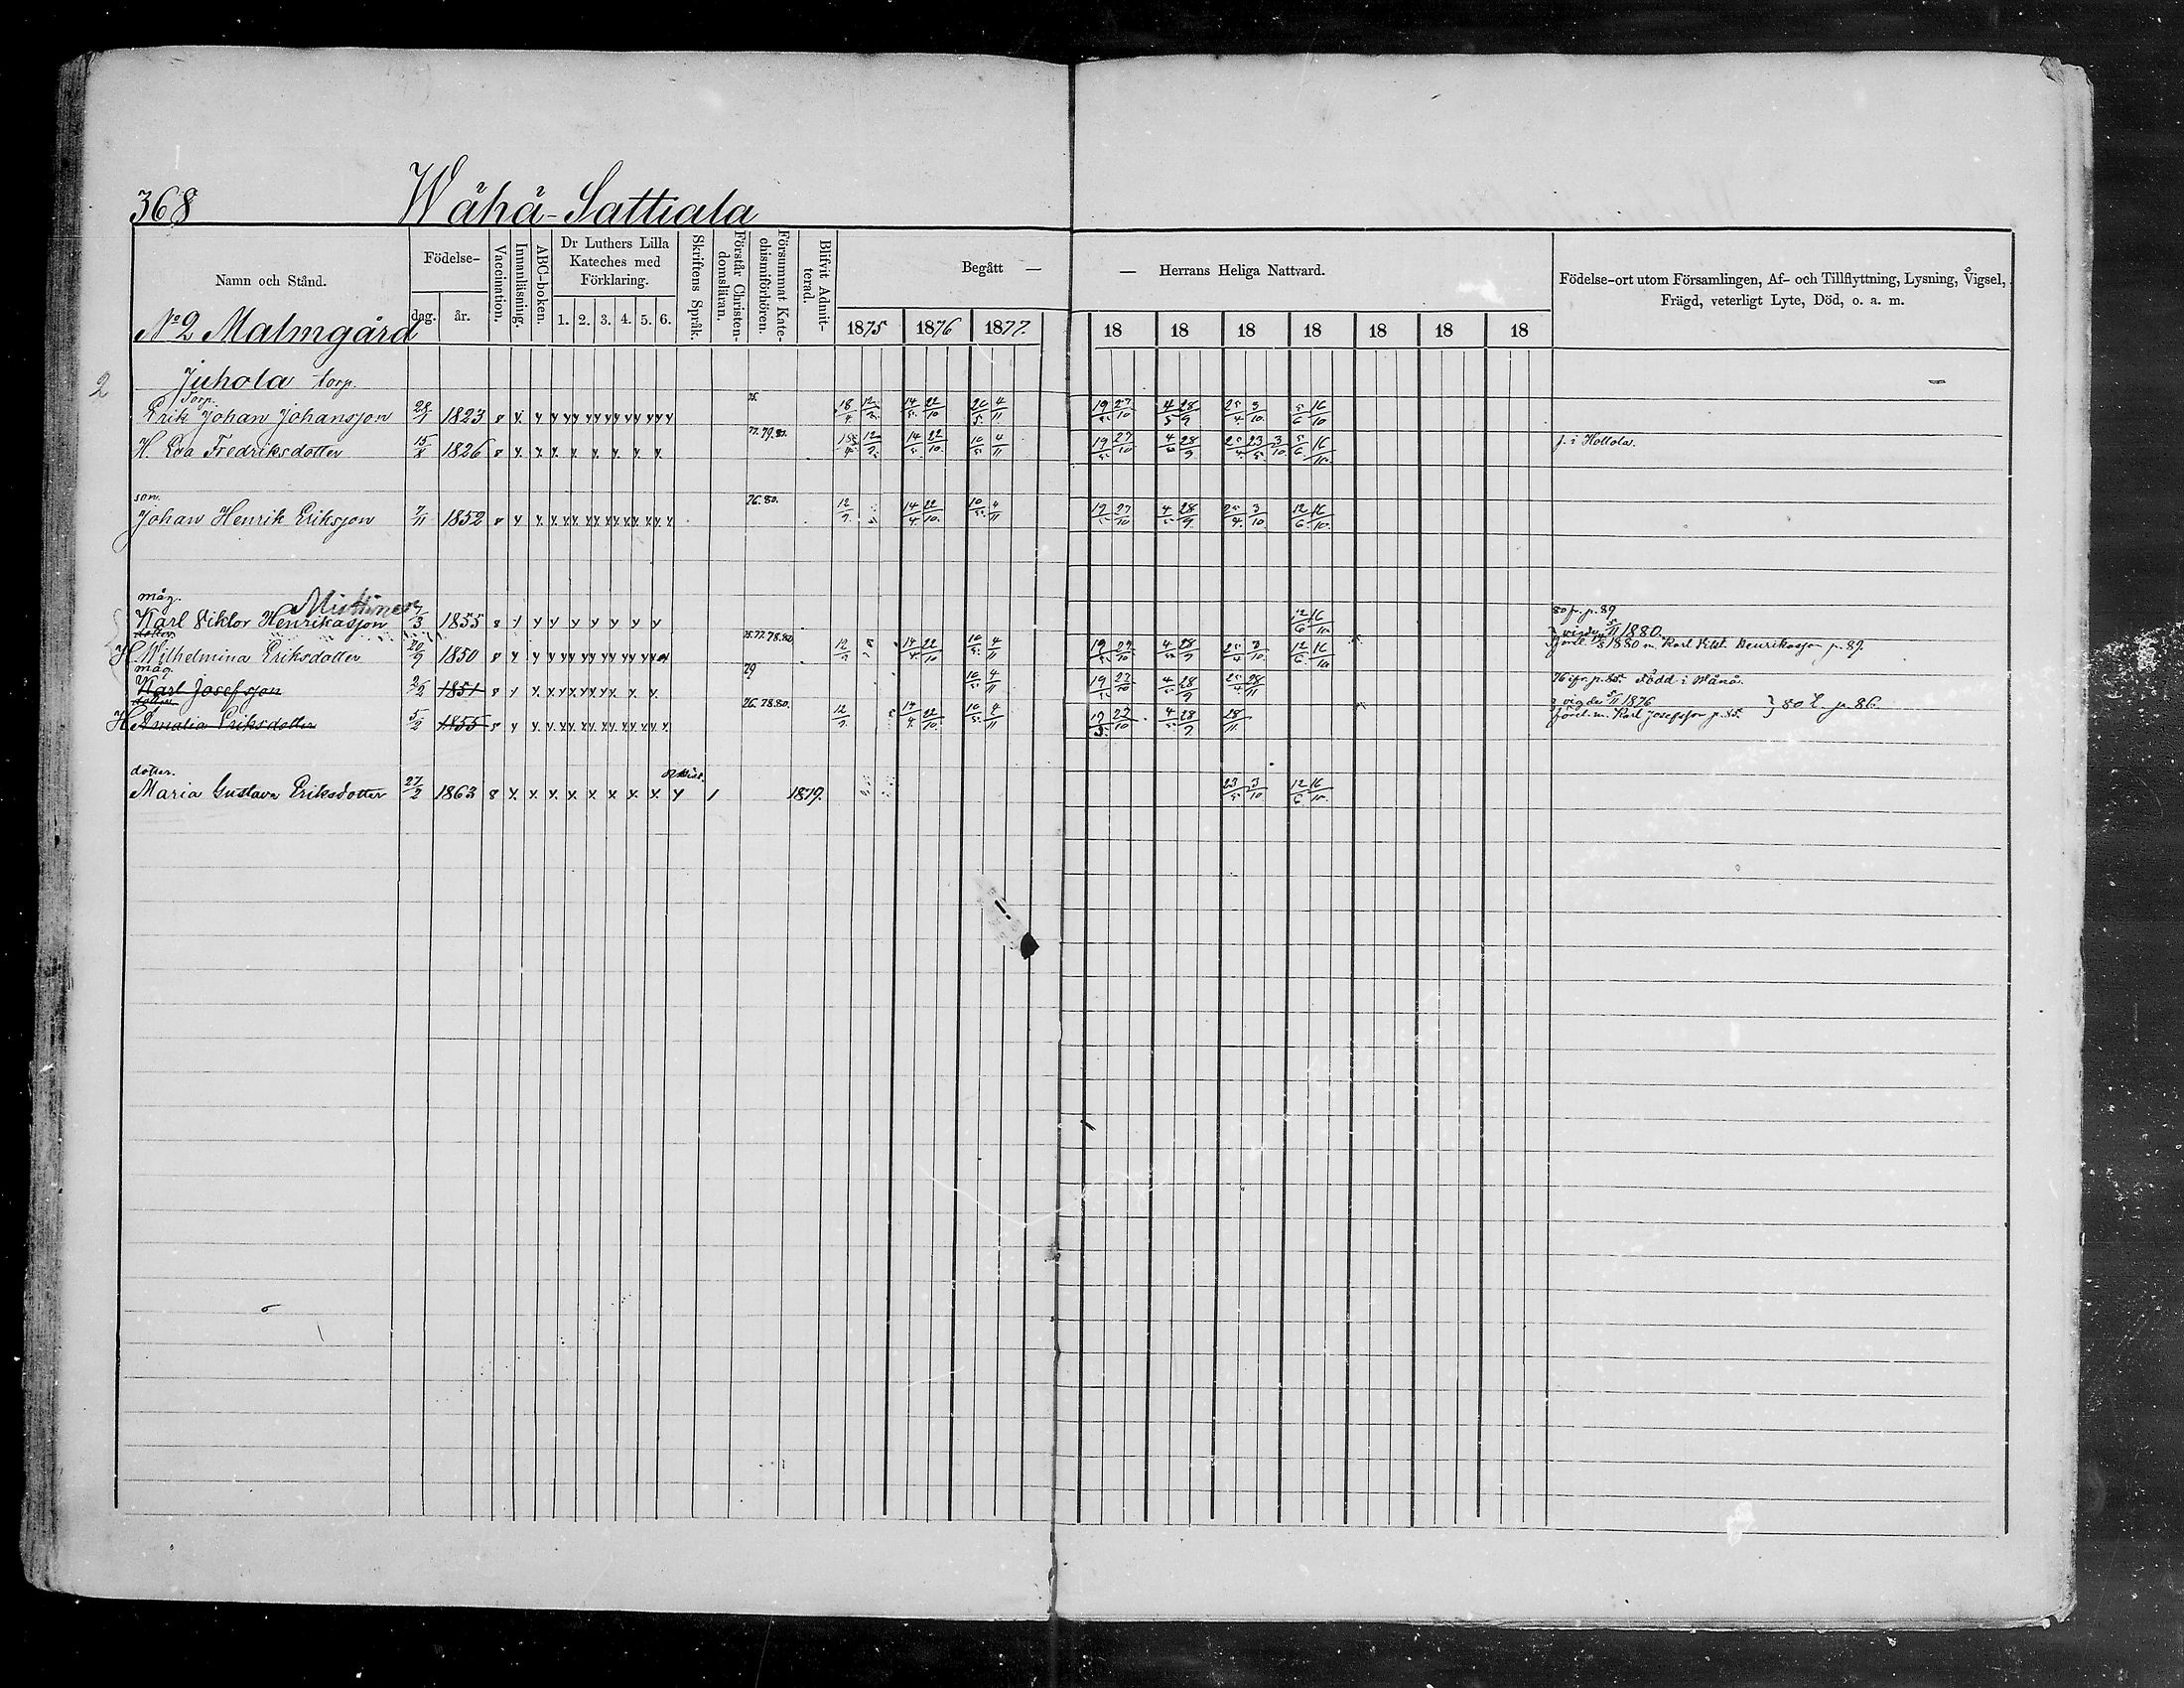 368 Wähä-Sattiala
Namn och Stånd.
Födelse-
dag. år.
Vaccination.
Innanläsning.
ABC-boken.
Dr Luthers Lilla
Kateches med
Förklaring.
1. 2. 3. 4. 5. 6.
Skriftens Språk.
Förstår Christen-
domsläran.
Försummat Kate-
chismiförhören.
Blifvit Admit-
terad.
Begått —
— Herrans Heliga Nattvard.
1875 1876 1877. 18 18 18 18 18 18 18
Födelse-ort utom Församlingen, Af- och Tillflyttning, Lysning, Vigsel,
Frägd, veterligt Lyte, Död, o. a. m.
No 2 Malmgård
2 Juhola torp.
Torp.
Erik Johan Johansson 1823 75. 18/4 14/5 22/10 4/11 19/5 27/10 4/5 28/9 25/4 3/10 16/10
H. Eva Fredriksdotter 15/8 1826 77.79.80. 14/5 22/10 10/5 4/11 19/5 27/10 4/5 28/9 25/4 23/5 3/10 16/10 f. i Hollola.
son.
Johan Henrik Eriksson 7/11 1852 76.80. 12/9 14/4 22/10 10/5 4/11 19/5 27/10 4/5 28/9 25/4 3/10 12/6 16/10
måg. Miettinen
Karl Viktor Henriksson 1855 12/6 16/10 80 fr. p. 89
dotter vigda 5/11 1880.
H Wilhelmina Eriksdotter 20/9 1850 75.77.78.80 12/9 14/4 22/10 10/5 4/11 19/5 27/10 4/5 28/9 25/4 3/10 12/6 16/10 1880 m. Karl Vikt. Henriksson p. 89.
måg.
Karl Josefsson 2/2 1851 79 10/5 4/11 19/5 27/10 4/5 28/9 25/4 28/11 76 ifr. p. 85. Född i Wånå.
dotter vigda 5/11 1876
H Amalia Eriksdotter 5/2 1855 76.78.80. 12/9 14/4 22/10 10/5 4/11 19/5 27/10 4/5 28/9 28/11 m. Karl Josefsson p. 85. } 80 t. p. 86.
dotter.
Maria Gustava Eriksdotter 27/2 1863 1 1879. 23/5 3/10 12/6 16/10